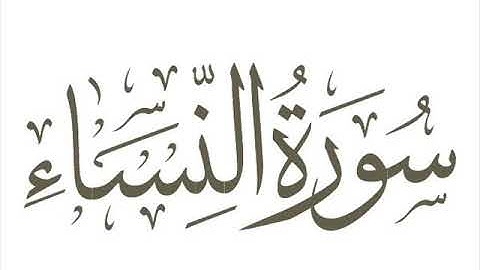 سُورَةُ النِّسَاءِ